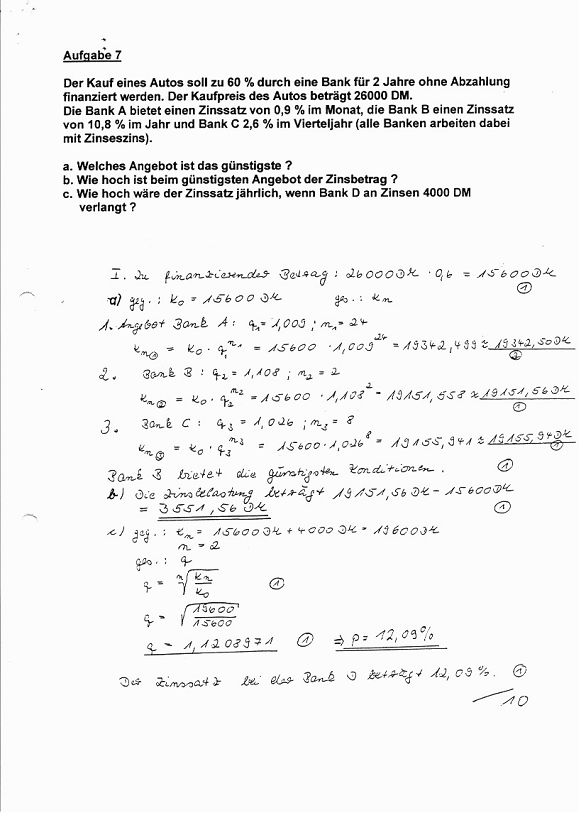 Aufgabe 7
Der Kauf eines Autos soll zu 60 % durch eine Bank für 2 Jahre ohne Abzahlung
finanziert werden. Der Kaufpreis des Autos beträgt 26000 DM.
Die Bank A bietet einen Zinssatz von 0,9 % im Monat, die Bank B einen Zinssatz
von 10,8 % im Jahr und Bank C 2,6 % im Vierteljahr (alle Banken arbeiten dabei
mit Zinseszins).
a. Welches Angebot ist das günstigste ?
b. Wie hoch ist beim günstigsten Angebot der Zinsbetrag ?
c. Wie hoch wäre der Zinssatz jährlich, wenn Bank D an Zinsen 4000 DM
verlangt ?
I. Zu finanzierender Betrag : 26000DM · 0,6 = 15600DM
①
a) geg.: K₀ = 15600 DM ges.: Kn
1. Angebot Bank A : q₁ = 1,009 ; n₁ = 24
Kn① = K₀ · q₁^n₁ = 15600 · 1,009^24 = 19342,499 ≈ 19342,50DM
②
2. Bank B : q₂ = 1,108 ; n₂ = 2
Kn② = K₀ · q₂^n₂ = 15600 · 1,108^2 = 19151,558 ≈ 19151,56DM
①
3. Bank C : q₃ = 1,026 ; n₃ = 8
Kn③ = K₀ · q₃^n₃ = 15600 · 1,026^8 = 19155,941 ≈ 19155,94DM
①
Bank B bietet die günstigsten Konditionen. ①
b) Die Zinsbelastung beträgt 19151,56 DM – 15600DM
= 3551,56 DM ①
c) geg.: Kn = 15600DM + 4000DM = 19600DM
n = 2
ges.: q
q = ⁿ√(Kn/K₀) ①
q = √(19600/15600)
q = 1,1208971 ① ⇒ p = 12,09%
Der Zinssatz bei der Bank D beträgt 12,09%. ①
10